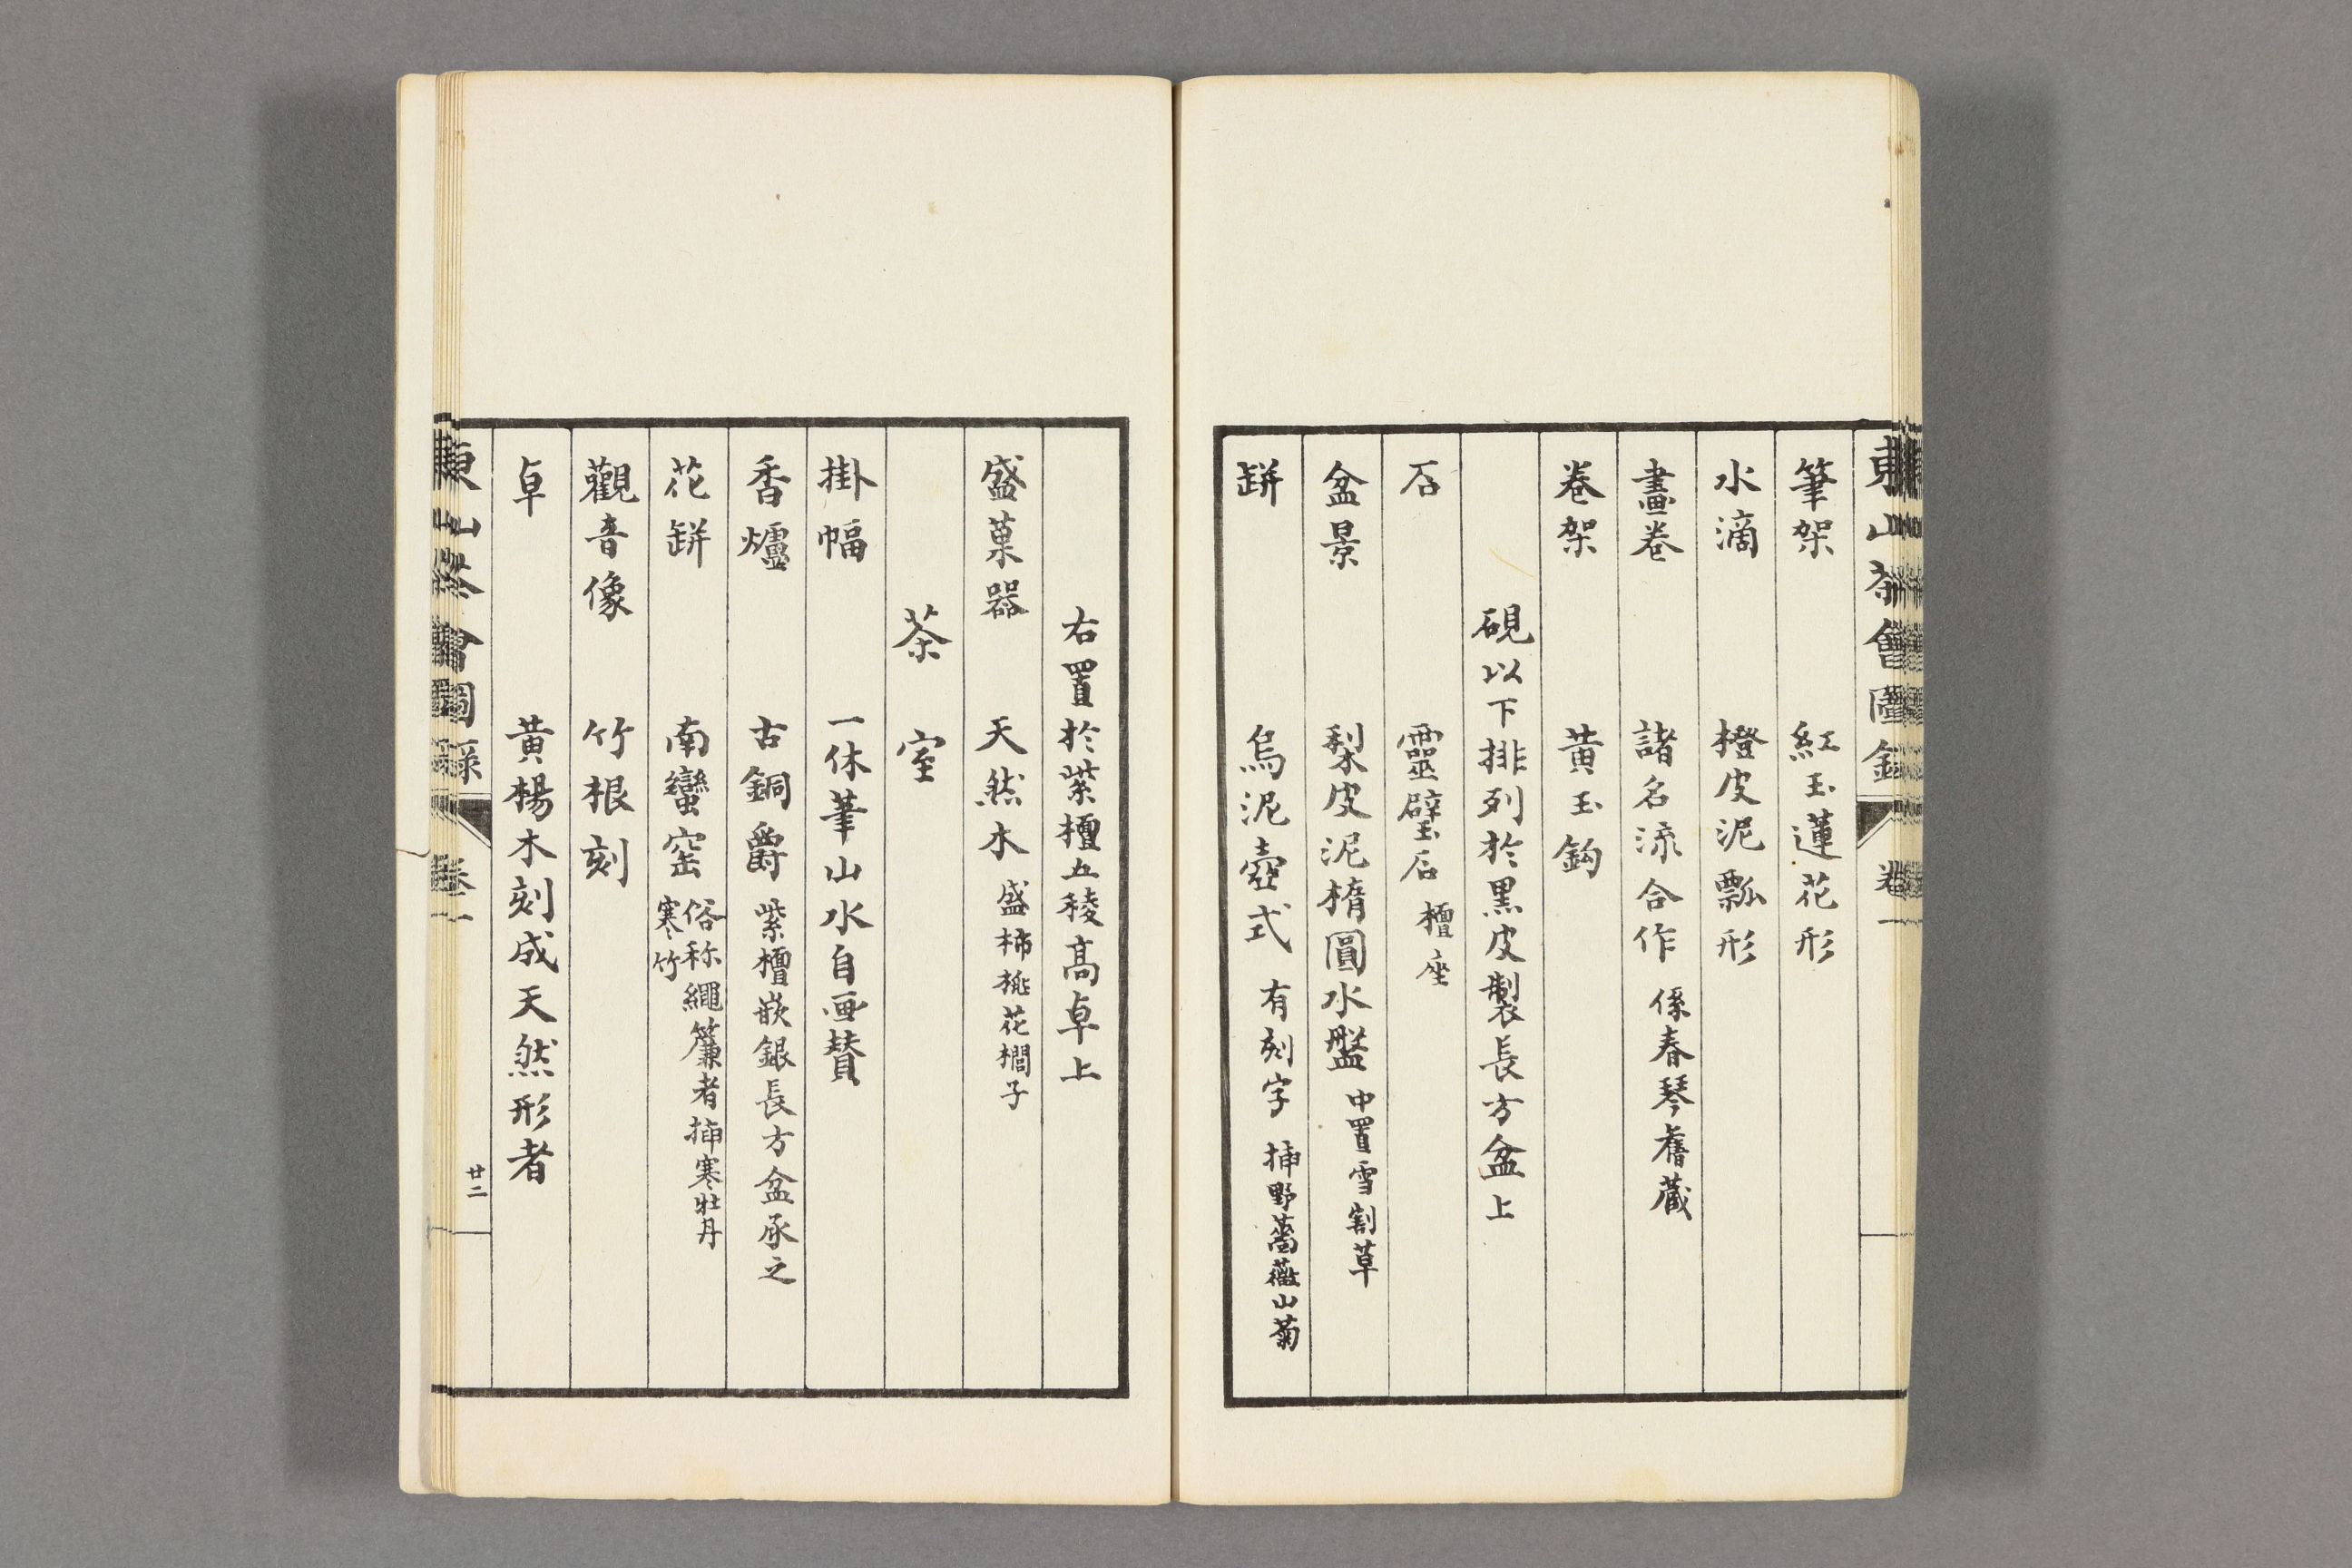 東山茶會圖錄 卷一
筆架 紅玉蓮花形
水滴 橙皮泥瓢形
畫卷 諸名流合作 係春琴舊藏
卷架 黃玉鈎
硯以下排列於黑皮製長方盆上
石 靈璧石 檀座
盆景 梨皮泥橢圓水盤 中置雪割草
缾 烏泥壺式 有刻字 挿野薔薇山菊
右置於紫檀五稜高卓上
盛菓器 天然木 盛柿桃花櫚子
茶室
掛幅 一休筆山水自画賛
香爐 古銅爵 紫檀嵌銀長方盆承之
花缾 南蠻窑 俗称繩簾者挿寒牡丹
寒竹
觀音像 竹根刻
卓 黃楊木刻成天然形者
東山茶會圖錄 卷一 廿二